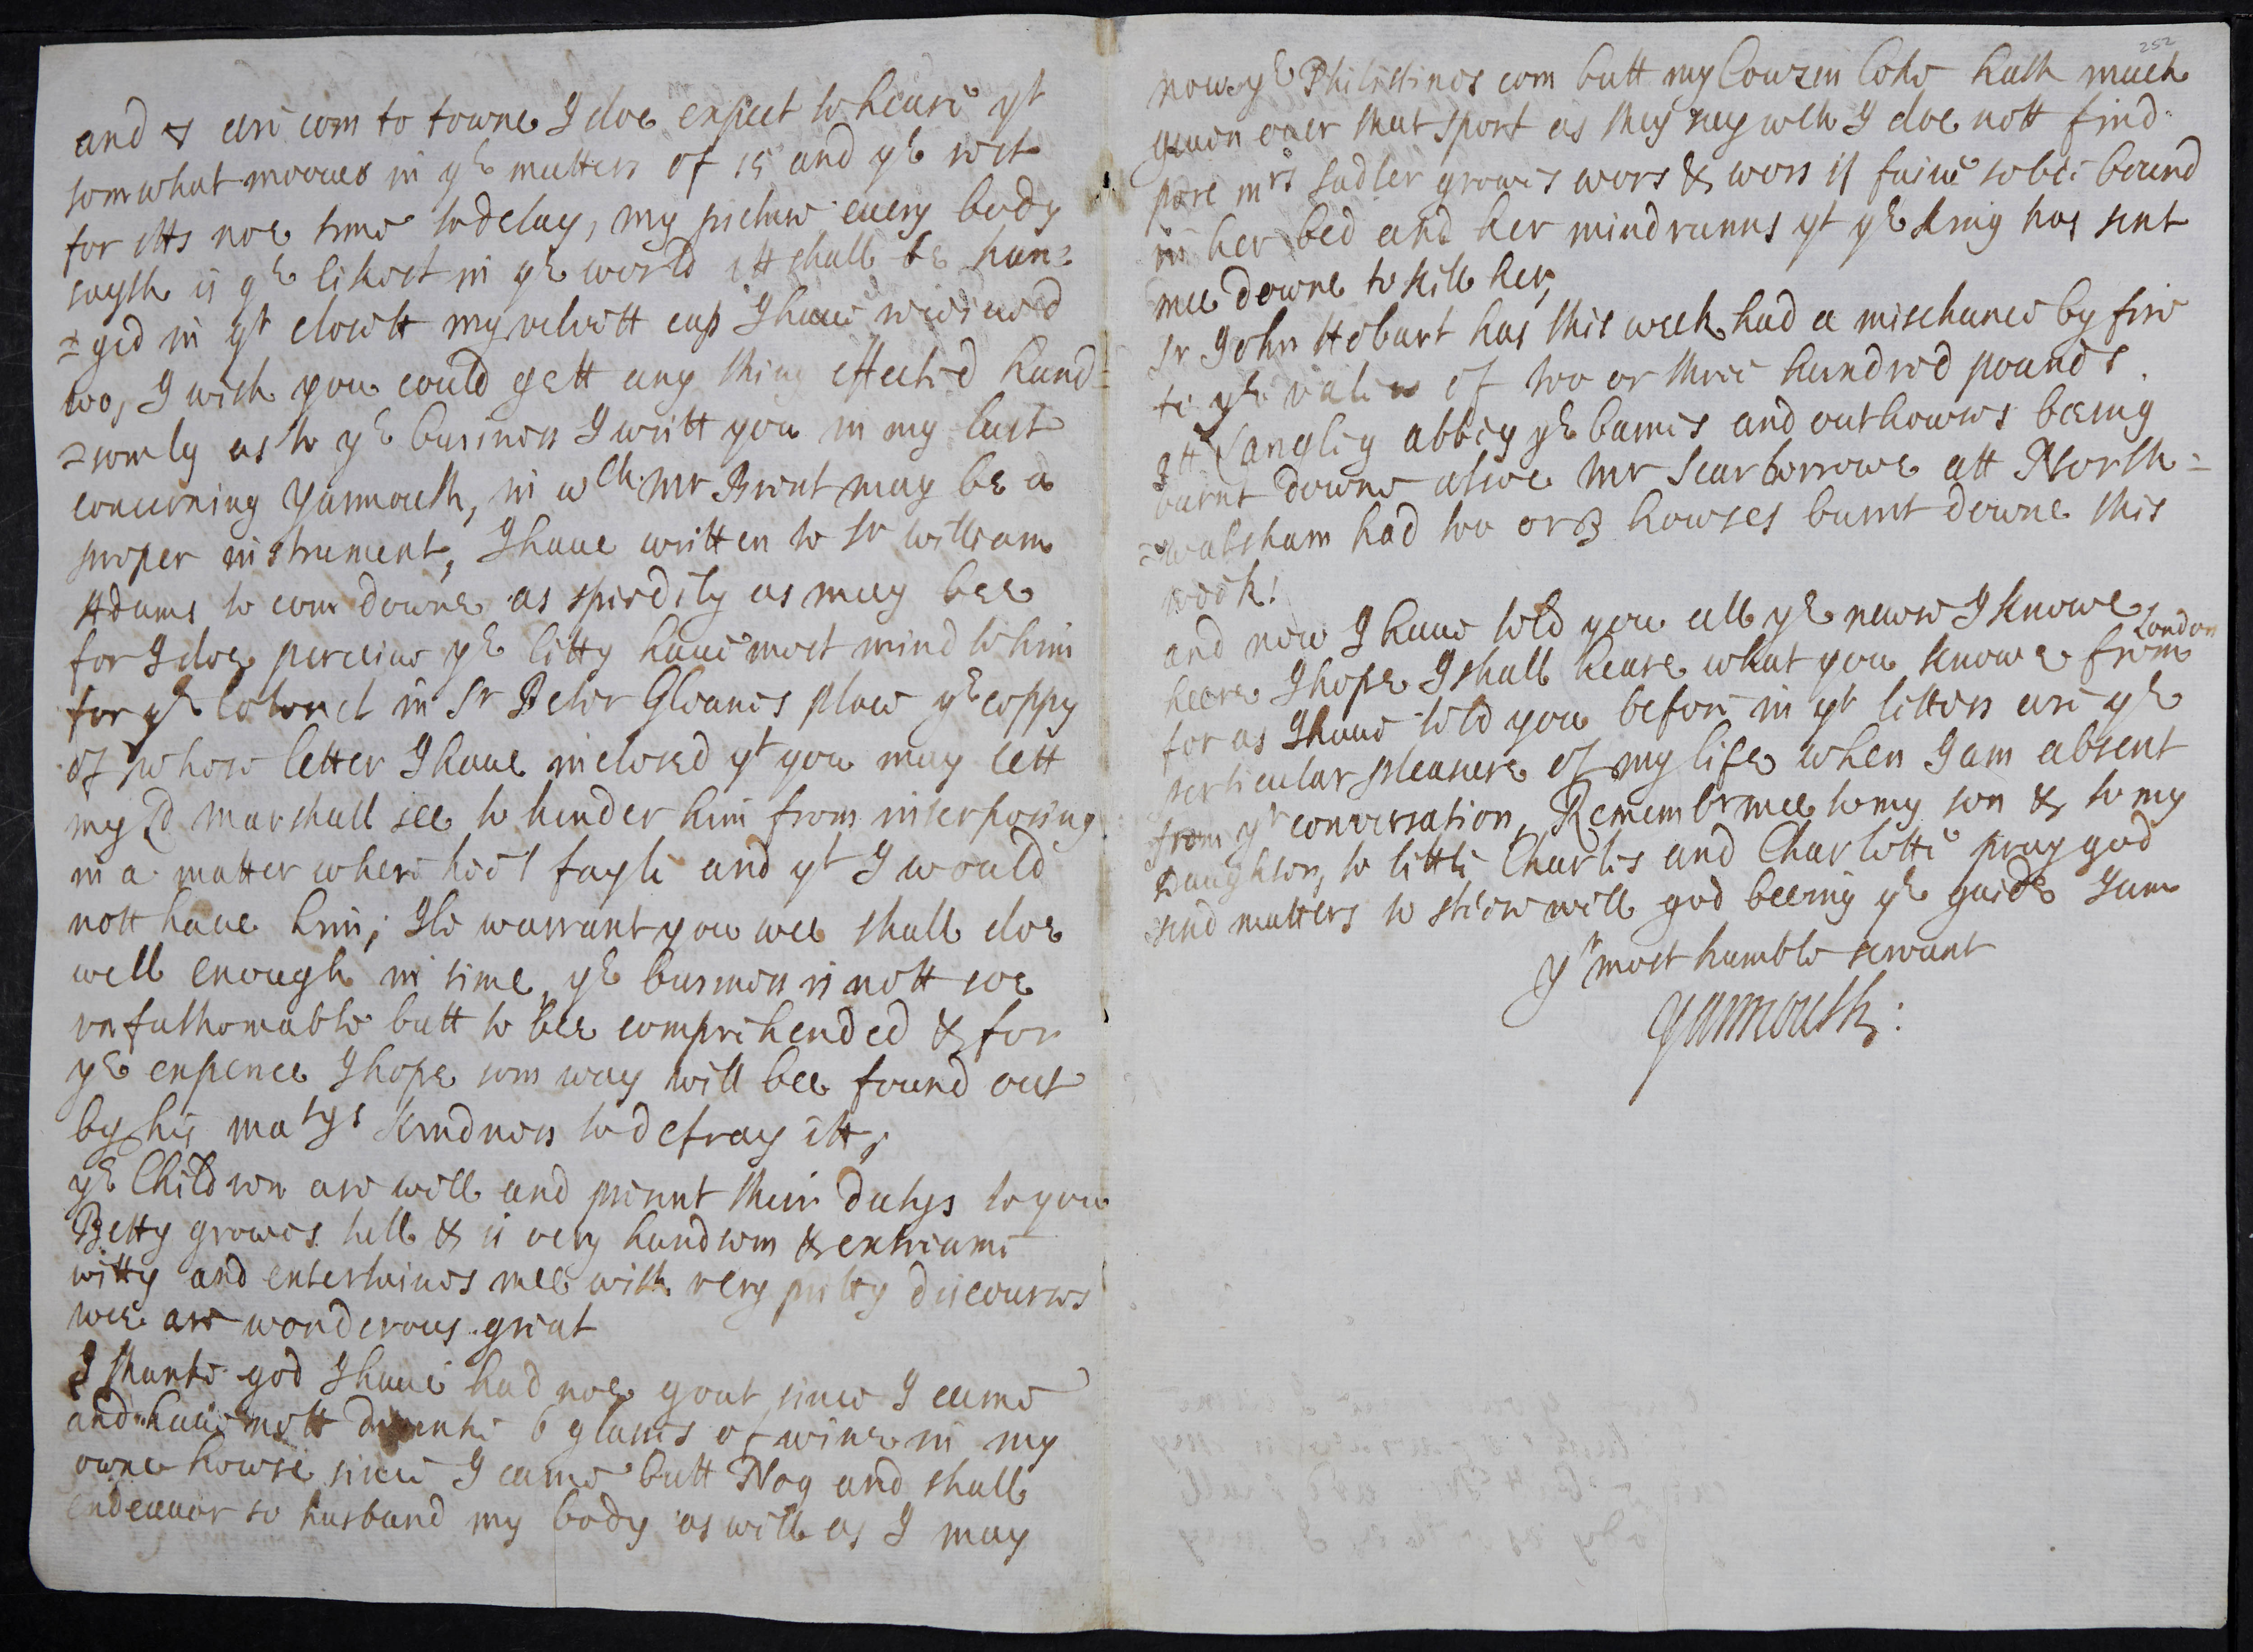 and & are com to towne I doe expect to heare yt
somwhat mooues in ye matters of 15 and ye rest
for itts noe time to delay, my picture euery body
sayth is ye likest in ye world itt shall be han=
=ged in yt clowtt my veluett cap I haue receiued
too, I wish you could gett any thing effected hand=
=somly as to ye business I writt you in my last
concerning Yarmouth, in wch Mr Brent may be a
proper instrument, I haue written to Sr William
Adams to com downe as speedily as may bee
for I doe perceiue ye Citty haue most mind to him
for ye Colonel in Sr Peter Gleanes place ye coppy
of whose letter I haue inclosed yt you may lett
my Ld Marshall see to hinder him from interposing
in a matter where hee'l fayle and yt I would
nott haue him; Ile warrant you wee shall doe
well enough in time, ye business is nott soe
vnfathomable butt to bee comprehended & for
ye expence I hope som way will bee found out
by his matys kindness to defray itt,
ye Children are well and present their dutys to you
Betty growes tall & is very handsom & extreame
witty and entertaines mee with very pritty discourses
wee are wonderous great
I thanke god I haue had noe gout since I came
and haue nott drunke 6 glasses of wine in my
owne howse since I came butt Nog and shall
endeauor to husband my body as well as I may
252
now ye Philistines com butt my Cowzen Coke hath much
giuen ouer that sport as they say wch I doe nott find
pore Mrs Sadler growes wors & wors is faine to be bound
in her bed and her mind runns yt ye King has sent
mee downe to kill her,
Sr John Hobart has this week had a mischance by fire
to ye value of two or three hundred pounds
att Langley abbey ye barnes and outhowses beeing
burnt downe alsoe Mr Scarborrowe att North=
=walsham had two or 3 howses burnt downe this
week!
and now I haue told you all ye newse I knowe
heere I hope I shall heare what you knowe from London
for as I haue told you before in yr letters are ye
perticular pleasure of my life when I am absent
from yr conversation, Remember mee to my son & to my
Daughter, to little Charles and Charlotte pray god
send matters to steere well god beeing ye guide I am
yr most humble seruant
Yarmouth: